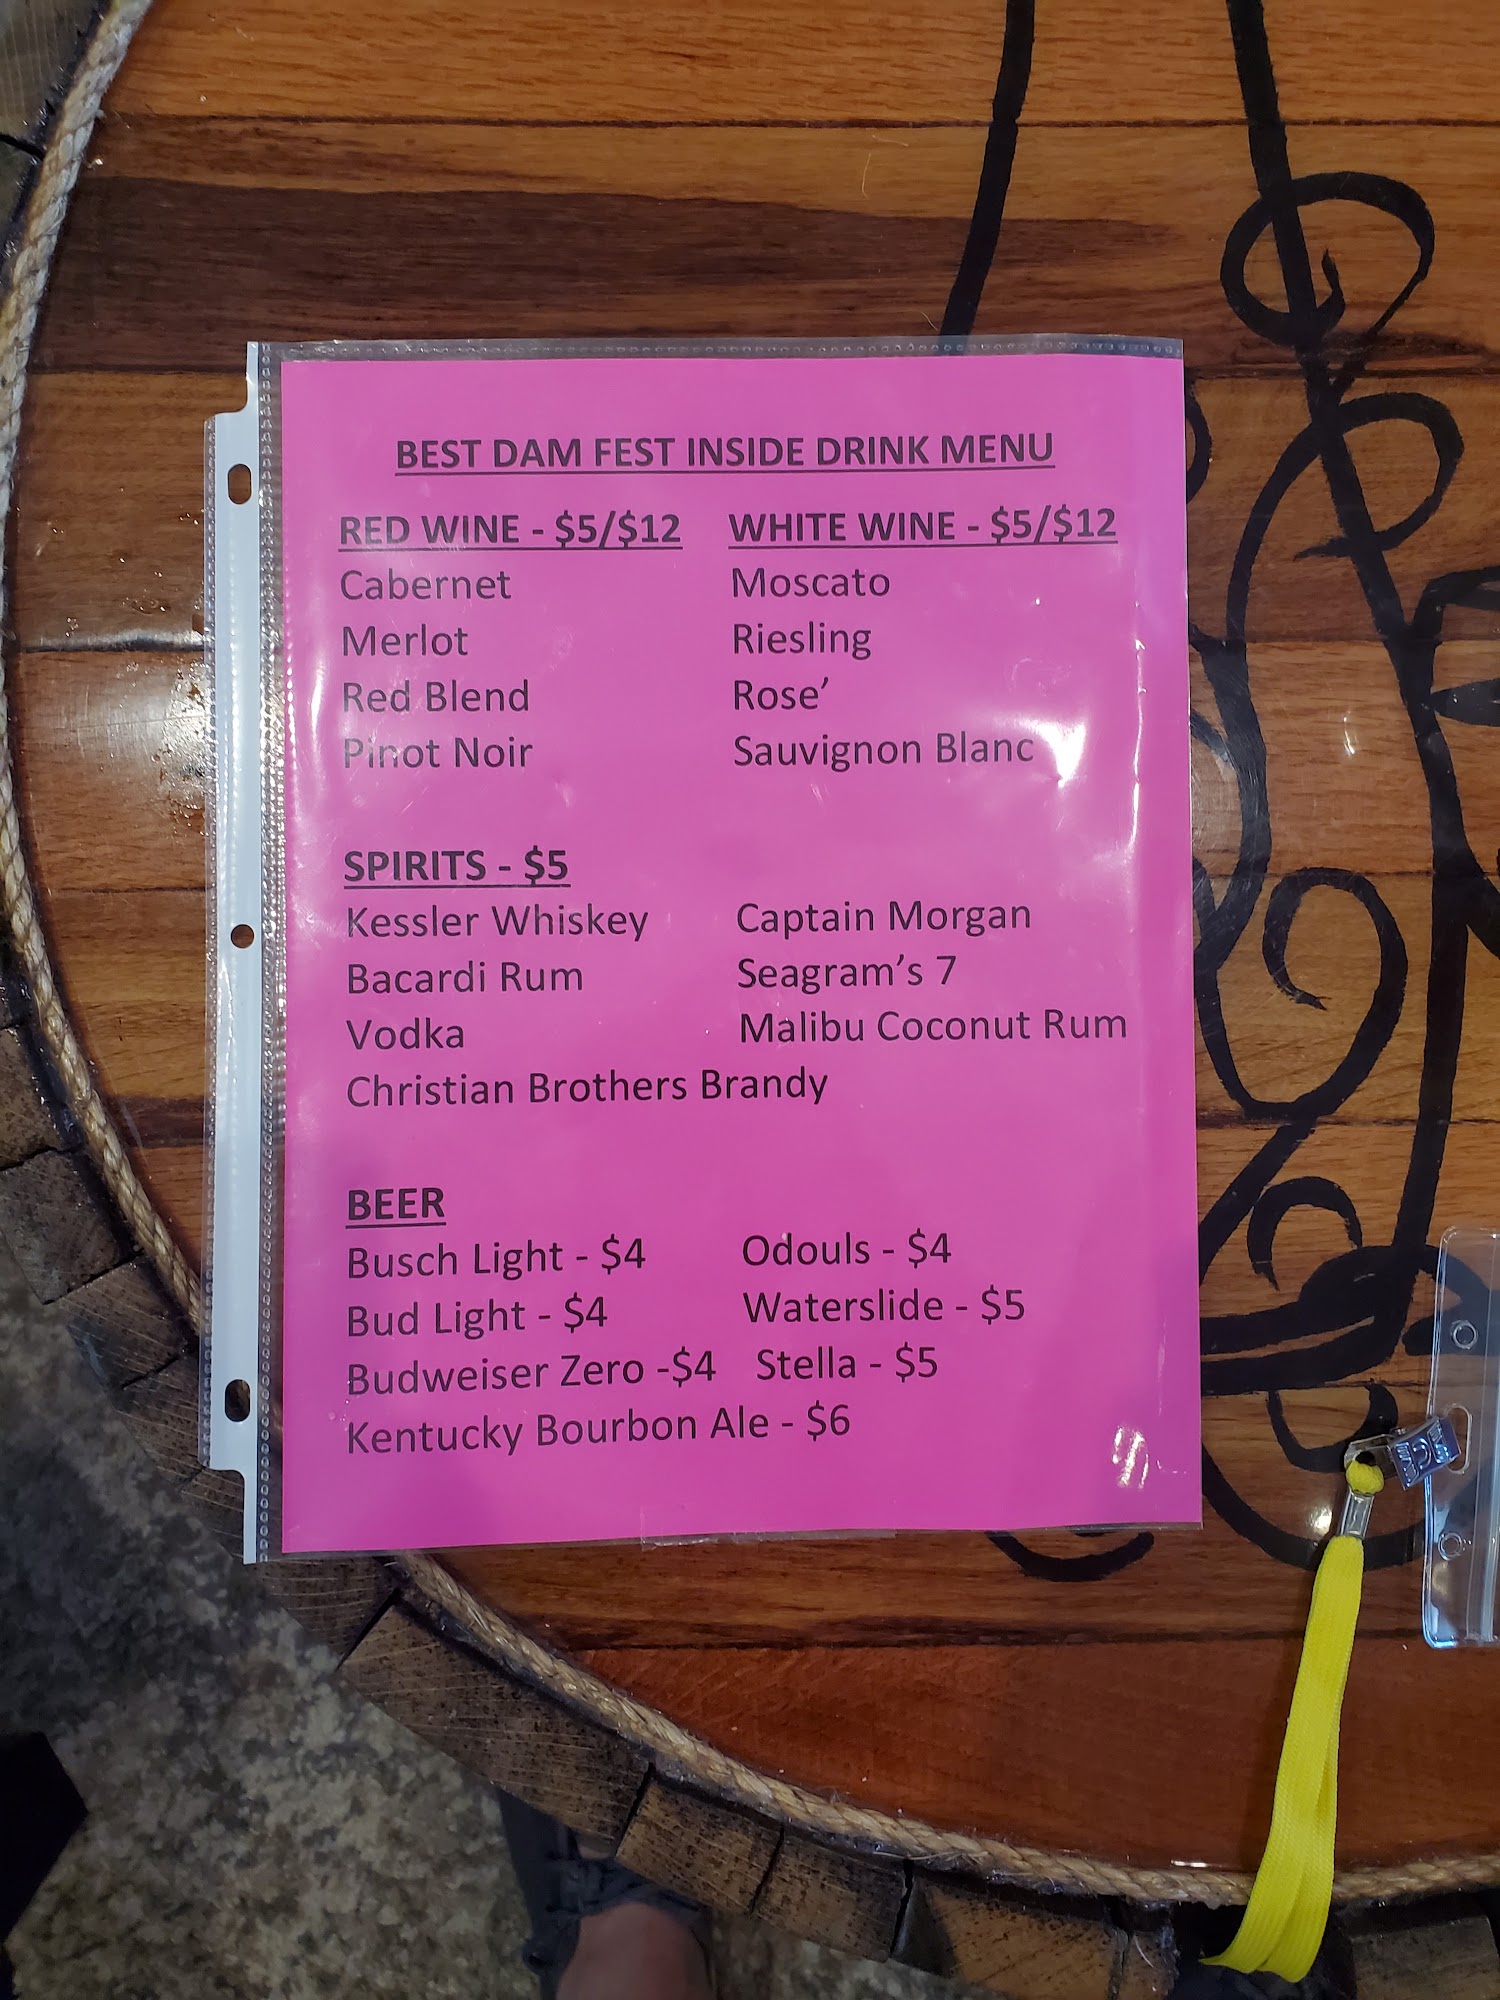 BEST DAM FEST INSIDE DRINK MENU
RED WINE - $5/$12 WHITE WINE - $5/$12
Cabernet Moscato
Merlot Riesling
Red Blend Rose’
Pinot Noir Sauvignon Blanc
SPIRITS - $5
Kessler Whiskey Captain Morgan
Bacardi Rum Seagram’s 7
Vodka Malibu Coconut Rum
Christian Brothers Brandy
BEER
Busch Light - $4 Odouls - $4
Bud Light - $4 Waterslide - $5
Budweiser Zero -$4 Stella - $5
Kentucky Bourbon Ale - $6